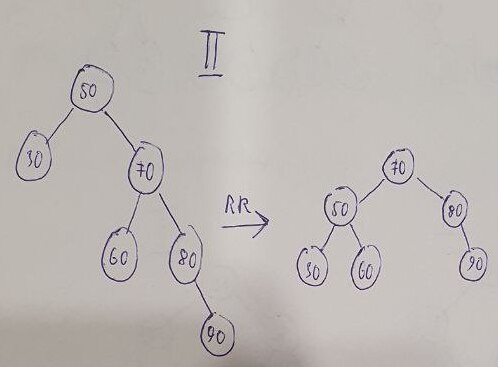 II
50
30
70
60
80
90
RR
70
50
80
30
60
90